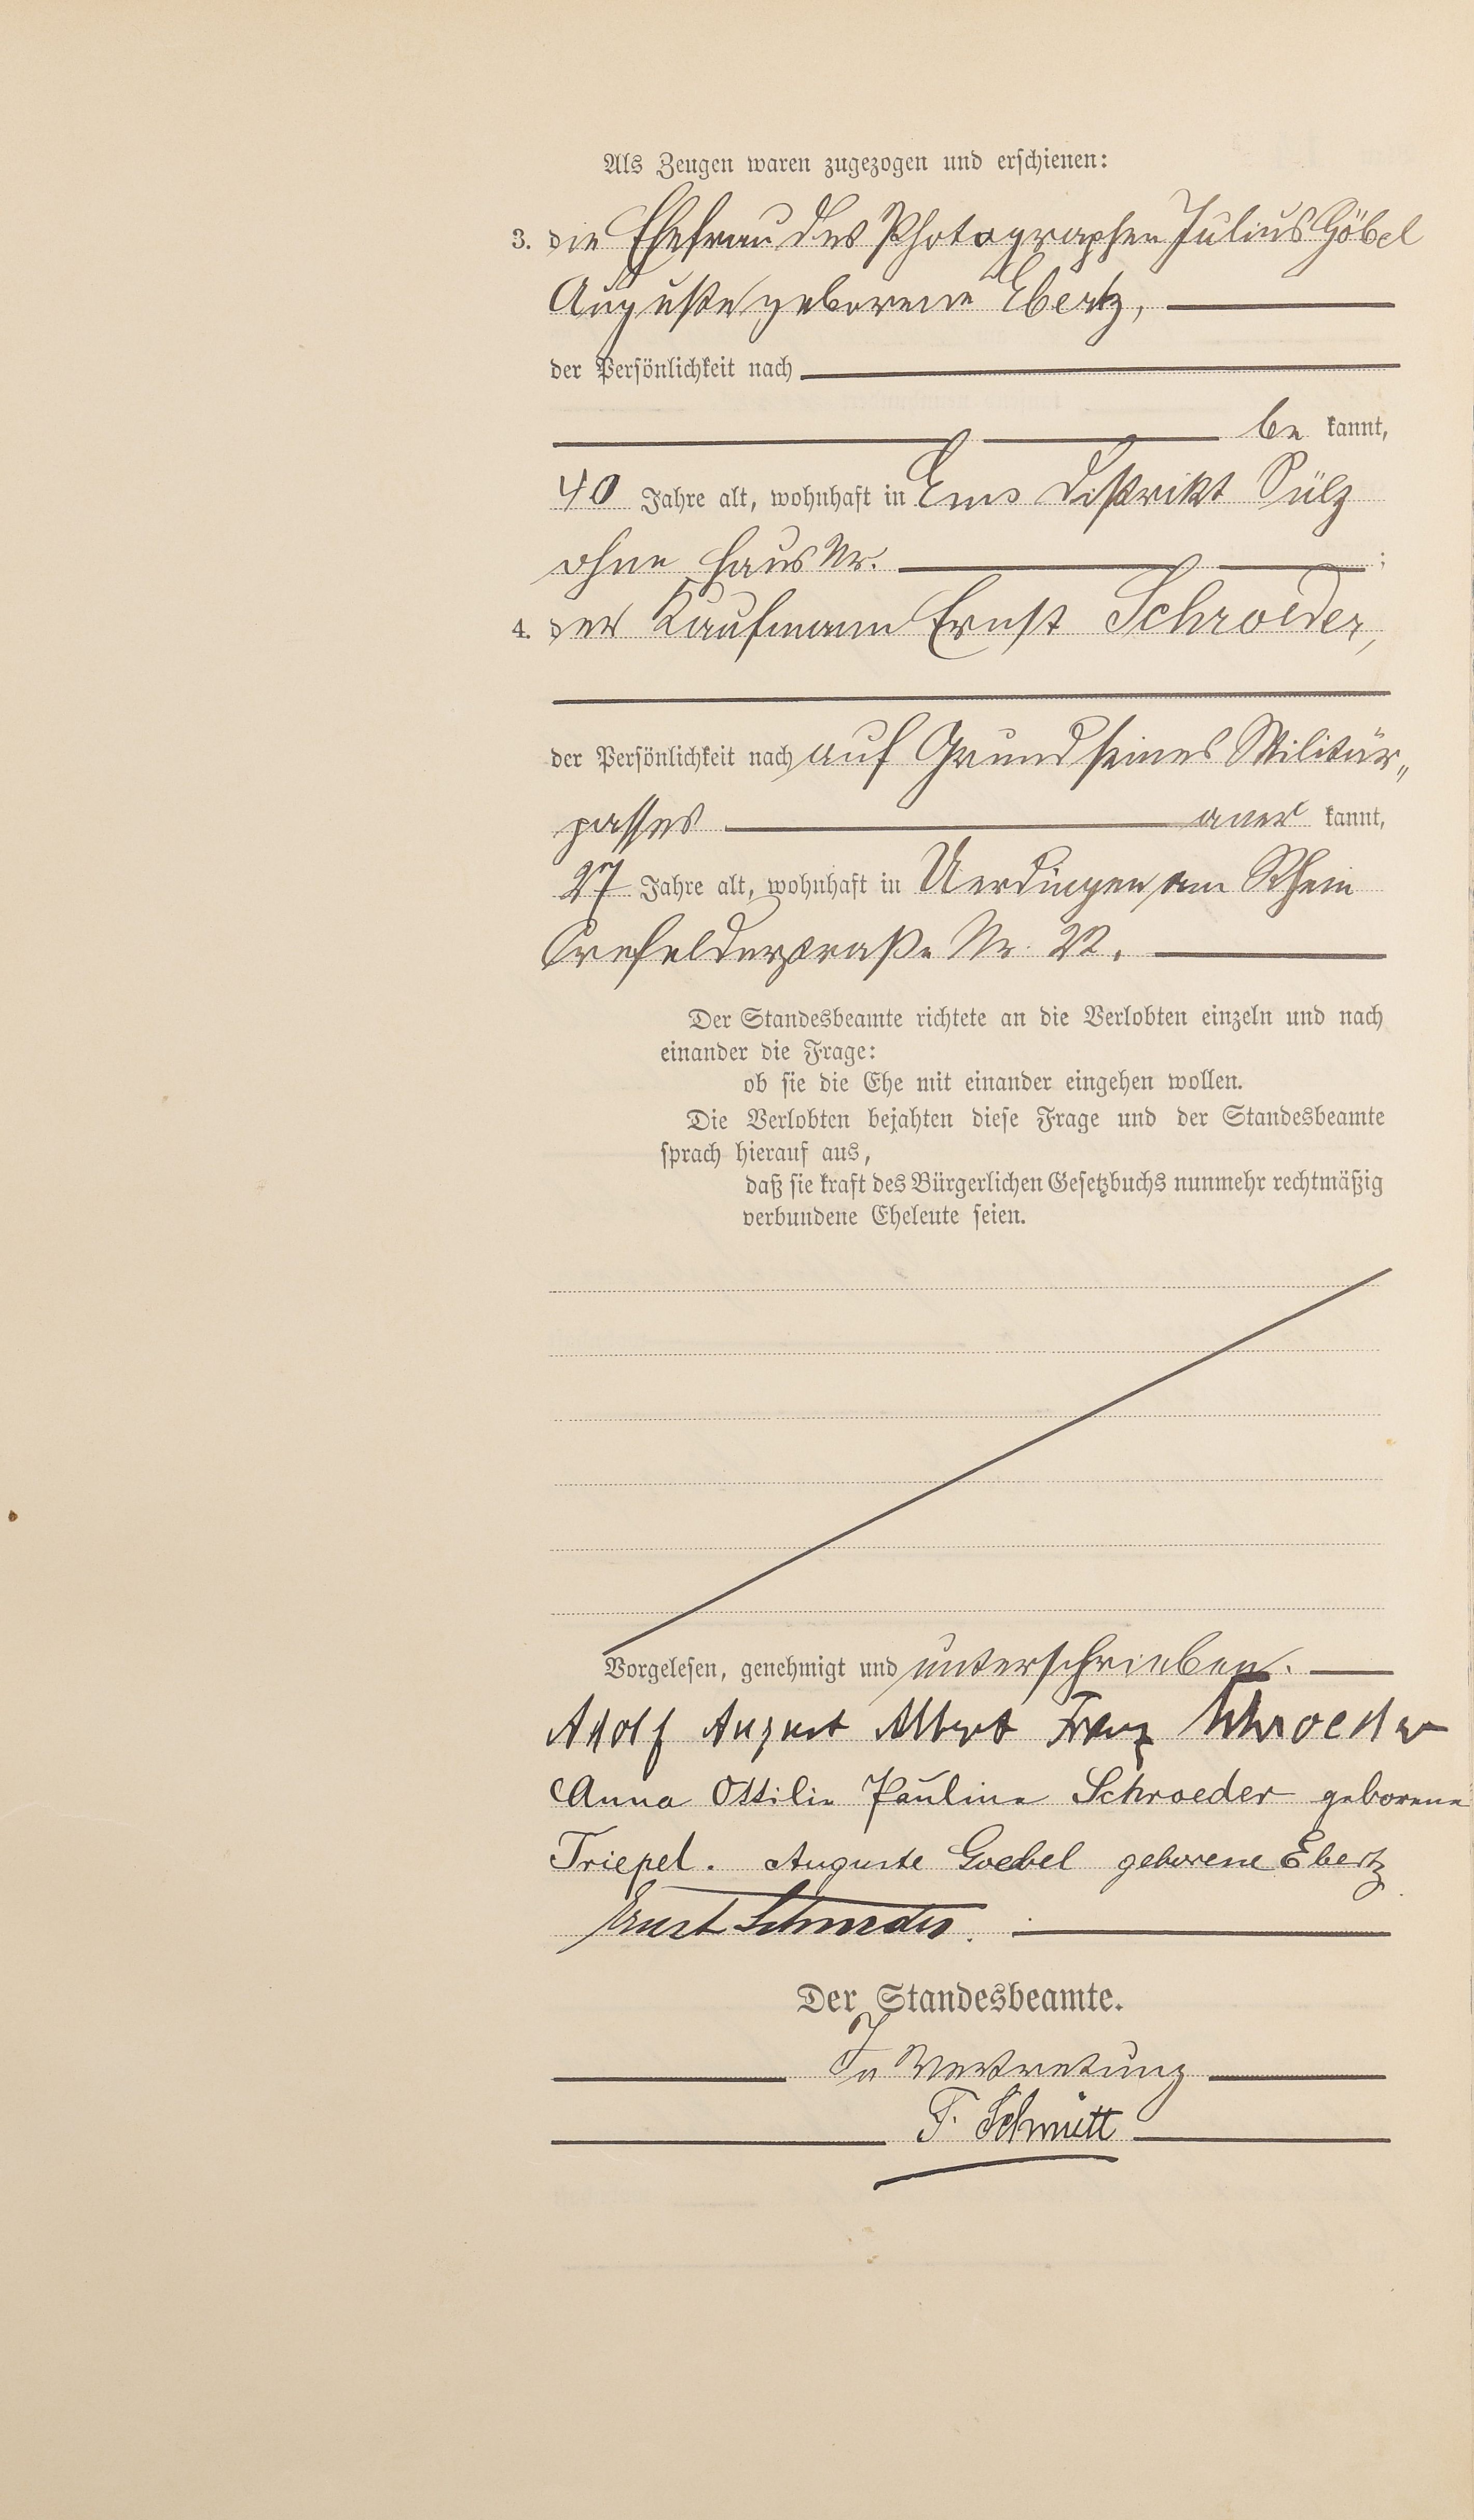 Als Zeugen waren zugezogen und erschienen:
3. die Ehefrau des Photographen Julius Göbel
Auguste geborene Ebertz,
der Persönlichkeit nach
be kannt,
40 Jahre alt, wohnhaft in Ems Distrikt Sülz
ohne Haus Nr. ;
4. der Kaufmann Ernst Schroeder,
der Persönlichkeit nach auf Grund seines Militär„
passes aner kannt,
27 Jahre alt, wohnhaft in Uerdingen am Rhein
Crefelderstraße Nr. 22.
Der Standesbeamte richtete an die Verlobten einzeln und nach
einander die Frage:
ob sie die Ehe mit einander eingehen wollen.
Die Verlobten bejahten diese Frage und der Standesbeamte
sprach hierauf aus,
daß sie kraft des Bürgerlichen Gesetzbuchs nunmehr rechtmäßig
verbundene Eheleute seien.
Vorgelesen, genehmigt und unterschrieben.
Adolf August Albert Franz Schroeder
Anna Ottilie Pauline Schroeder geborene
Triepel. Auguste Goebel geborene Ebertz
Ernst Schroeder.
Der Standesbeamte.
In Vertretung
F. Schmitt